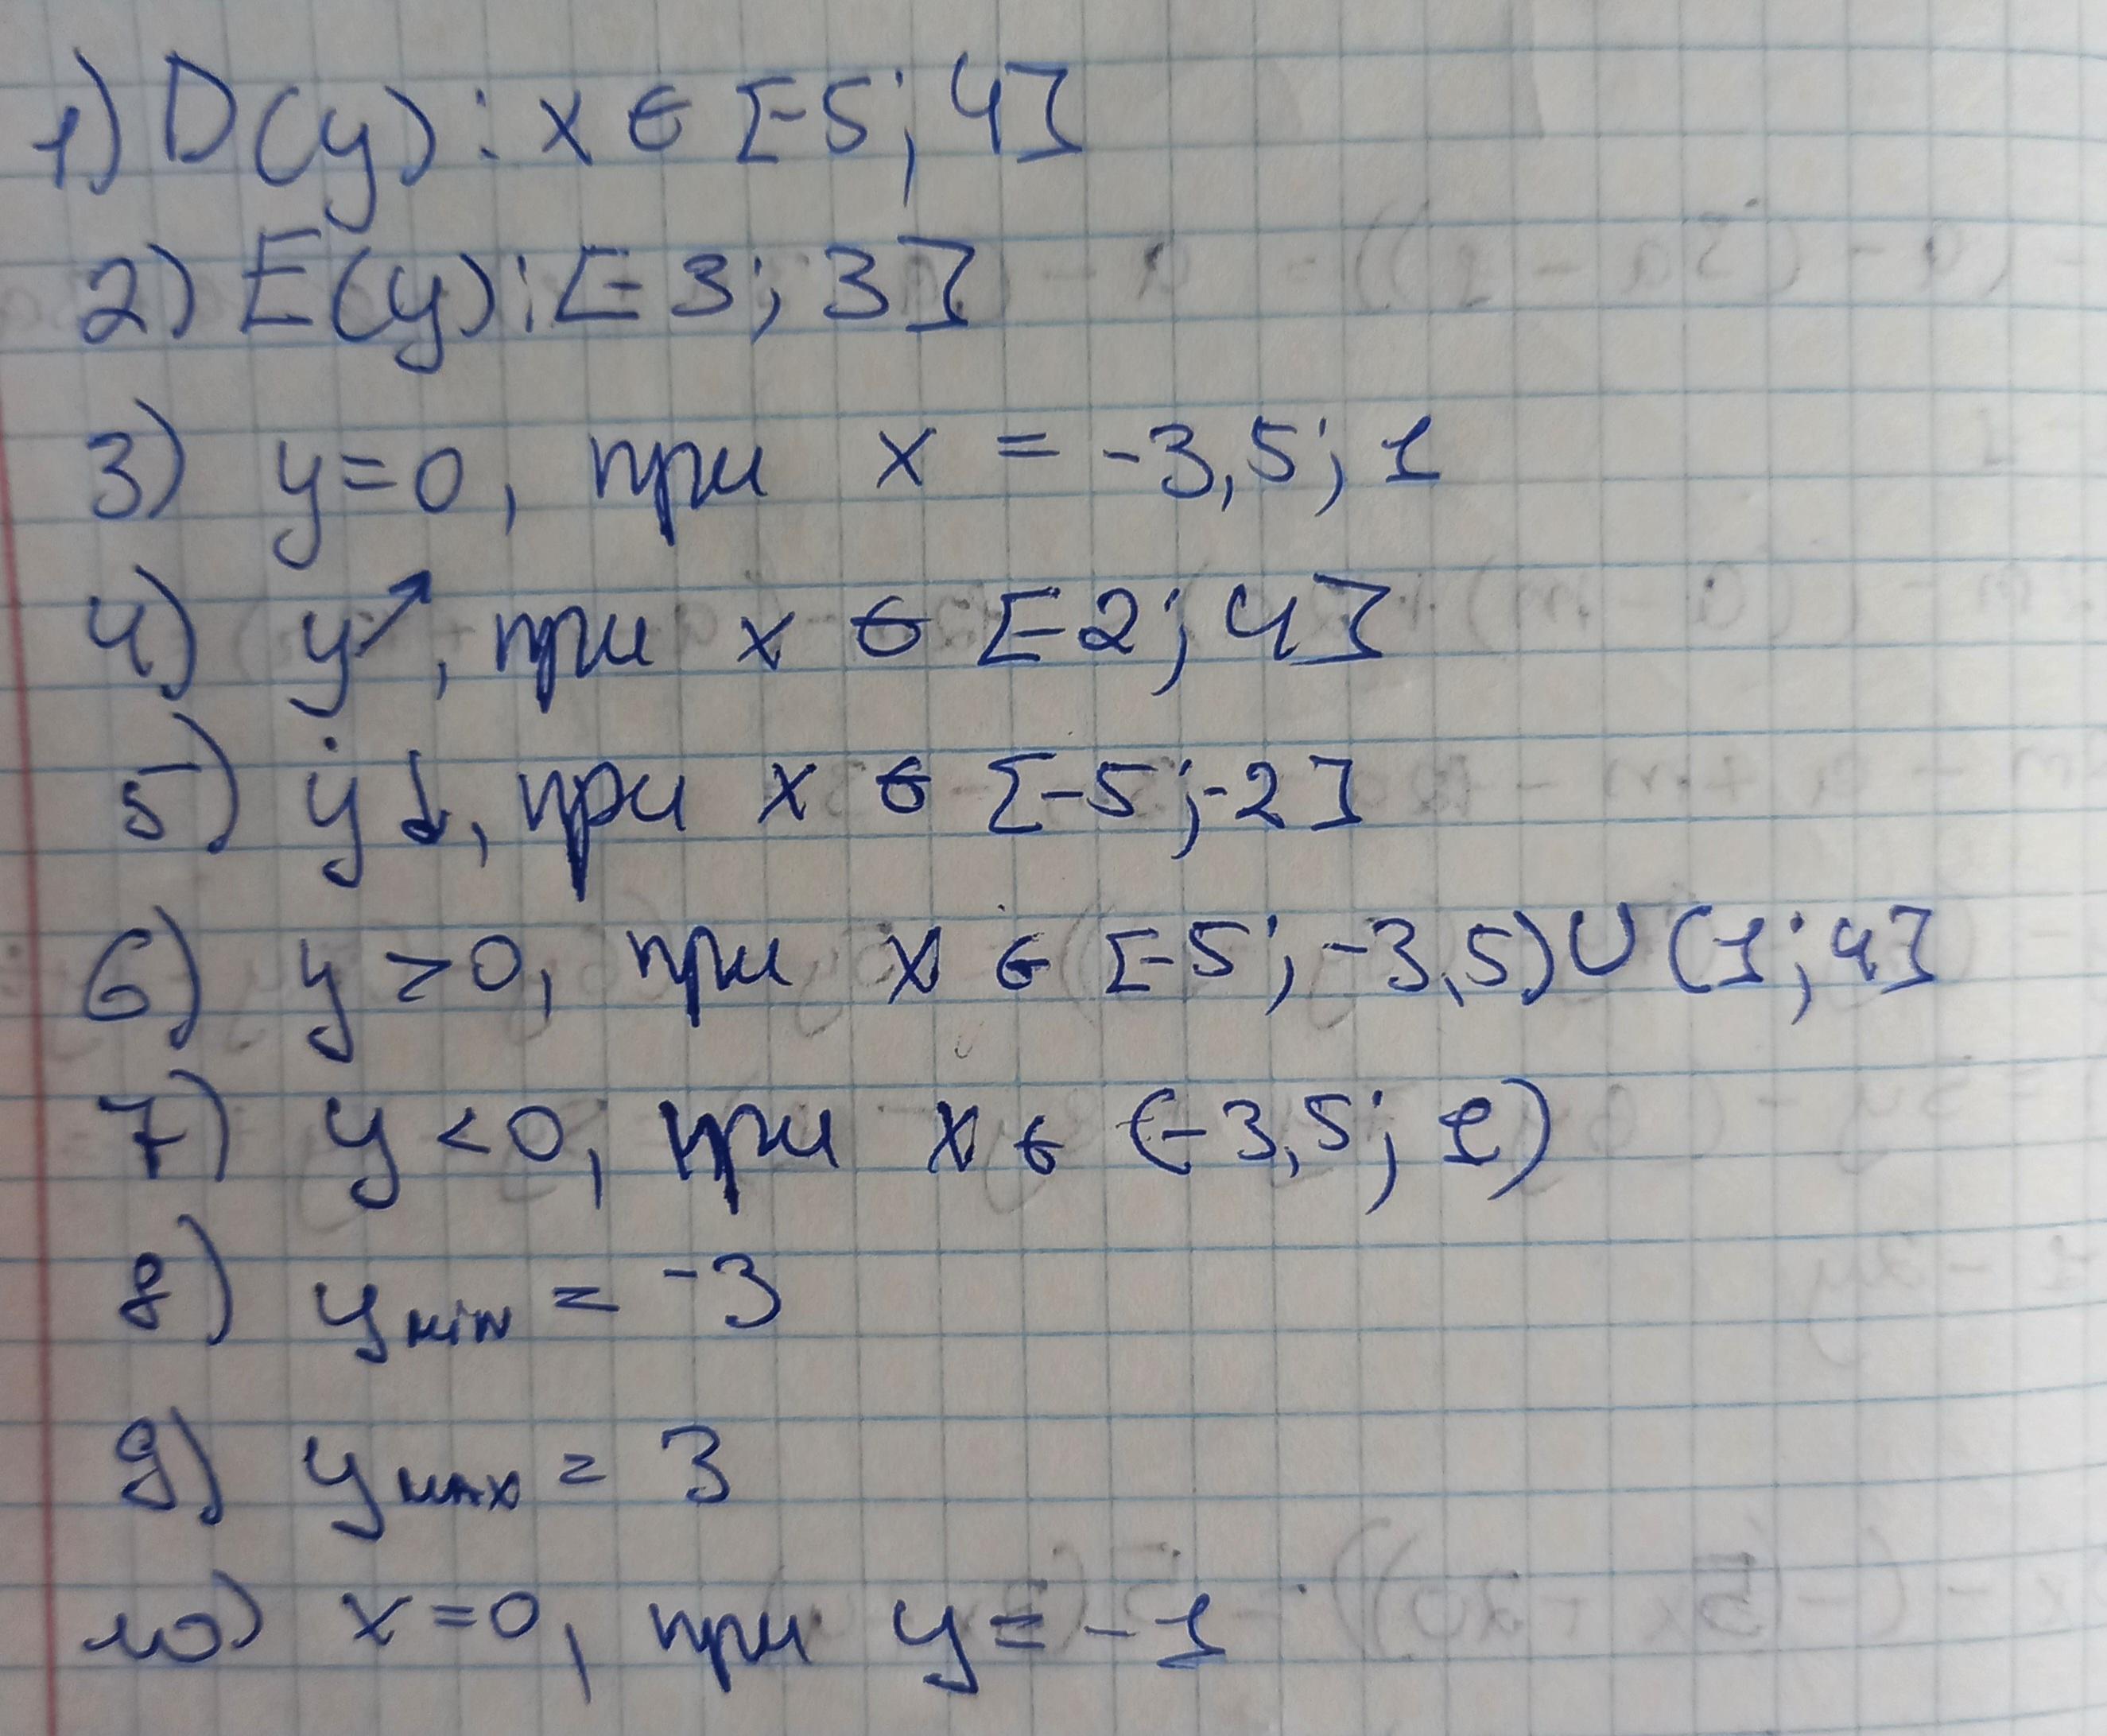 1) D(y): x ∈ [-5; 4]
2) E(y): [-3; 3]
3) y=0, при x = -3,5; 1
4) y↗, при x ∈ [-2; 4]
5) y↓, при x ∈ [-5; -2]
6) y>0, при x ∈ [-5; -3,5) ∪ (1; 4]
7) y<0, при x ∈ (-3,5; 1)
8) y min = -3
9) y max = 3
10) x=0, при y = -1